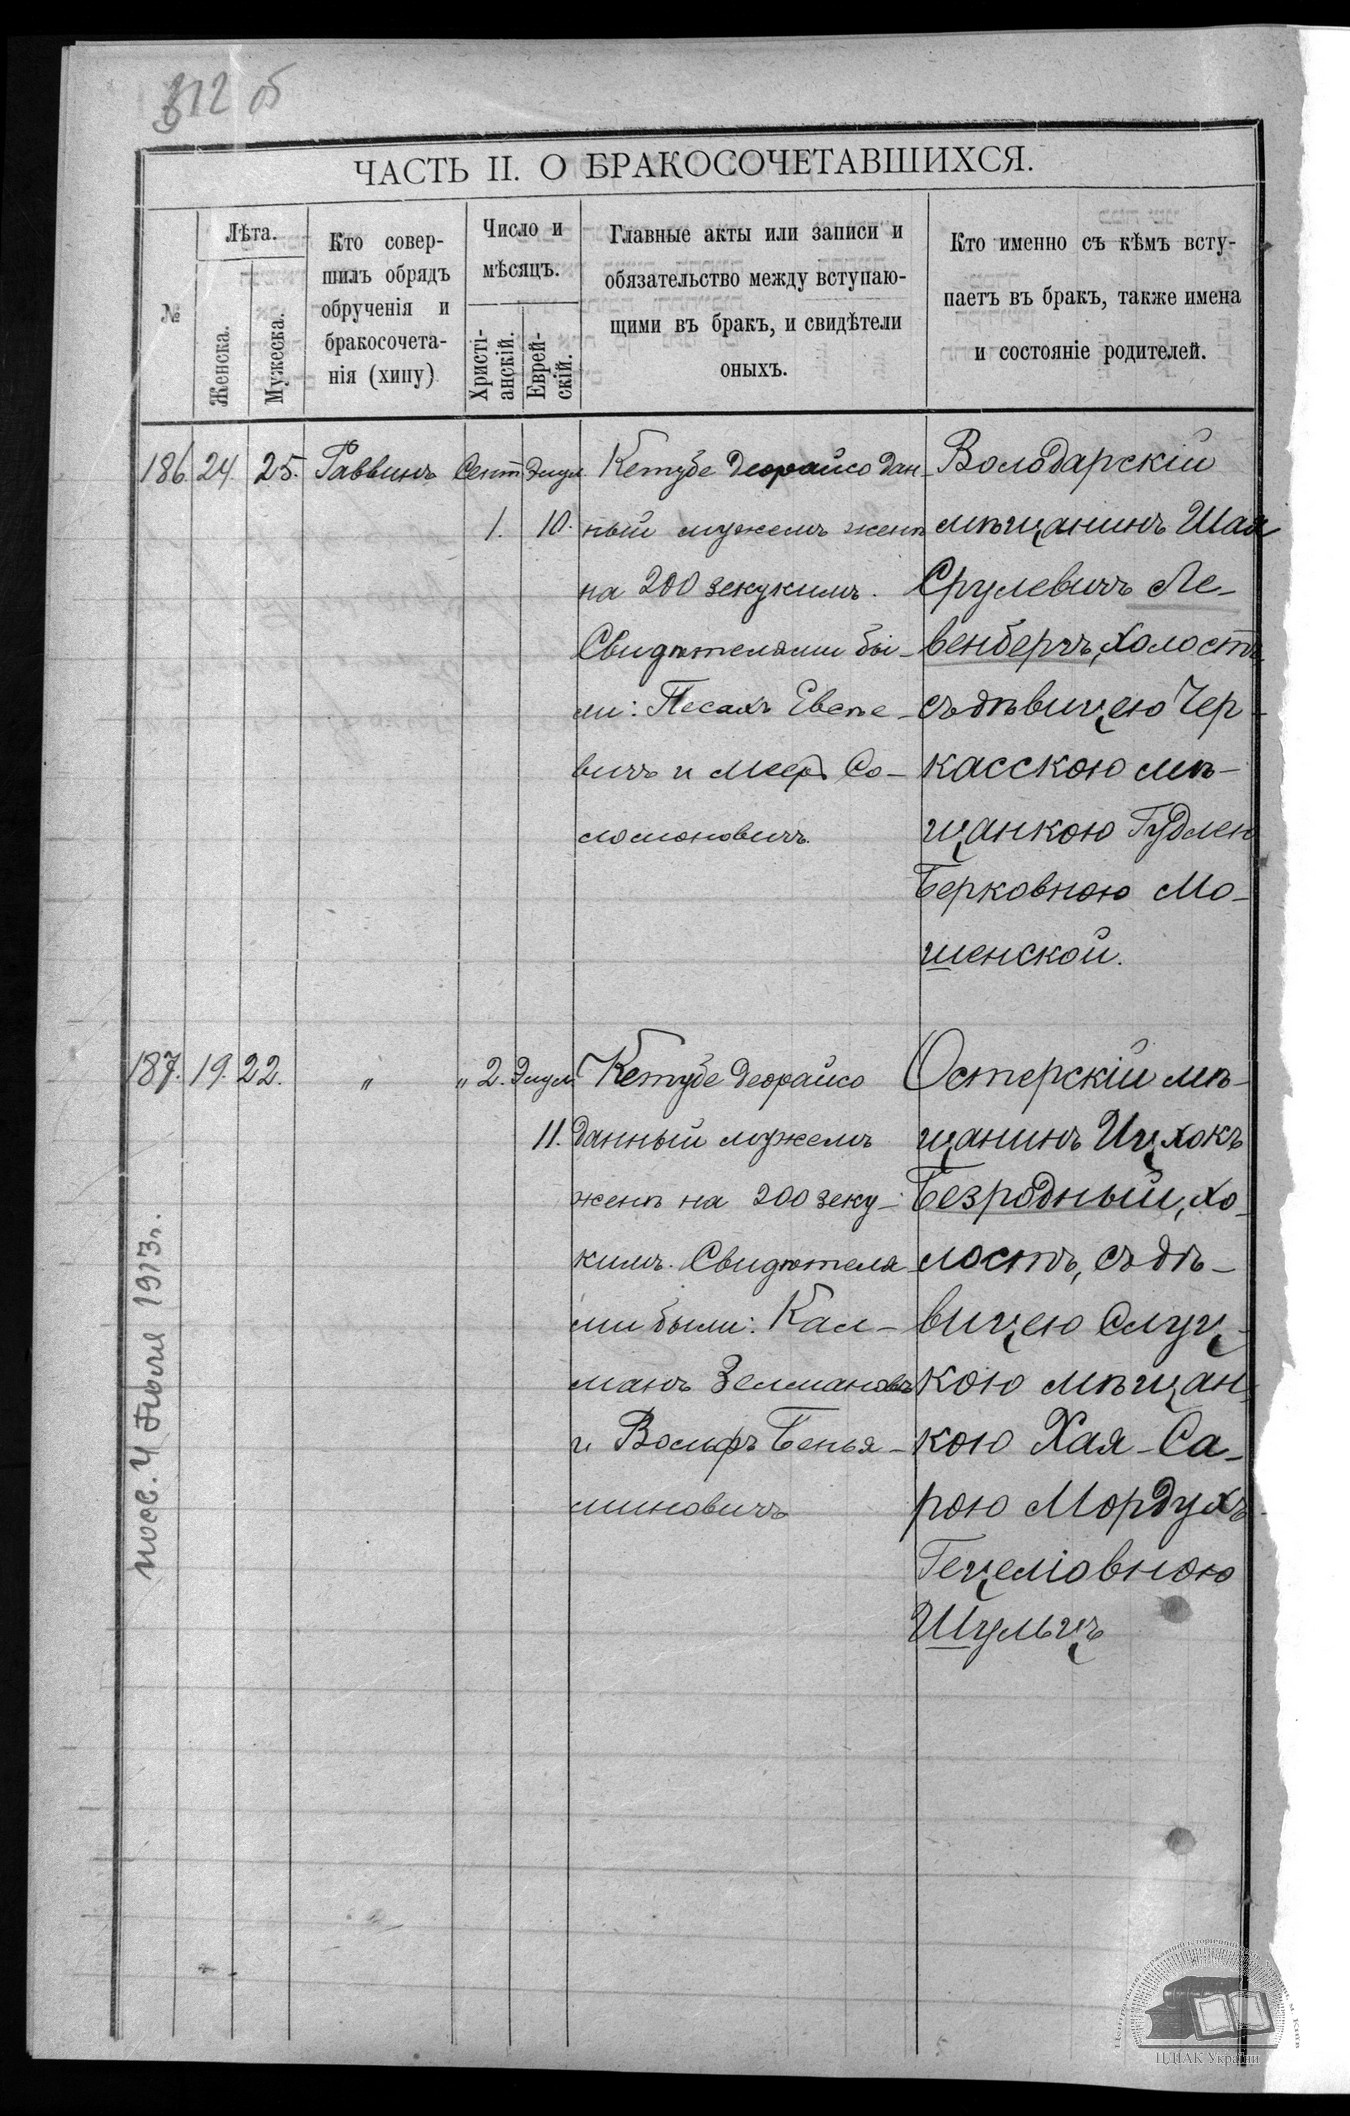 312 об
ЧАСТЬ II. О БРАКОСОЧЕТАВШИХСЯ.
№
Лѣта.
Женска.
Мужеска.
Кто совер-
шилъ обрядъ
обрученія и
бракосочета-
нія (хипу)
Число и
мѣсяцъ.
Христі-
анскій.
Еврей-
скій.
Главные акты или записи и
обязательство между вступаю-
щими въ бракъ, и свидѣтели
оныхъ.
Кто именно съ кѣмъ всту-
паетъ въ бракъ, также имена
и состояніе родителей.
186. 24. 25. Раввинъ Сент. Элул.
1. 10.
Кетубе деорайсо дан-
ный мужемъ женѣ
на 200 зекукимъ.
Свидѣтелями бы-
ли: Песахъ Евсѣе-
вичъ и Мееръ Со-
ломоновичъ.
Володарскій
мѣщанинъ Шая
Срулевичъ Ле-
венбергъ, холостъ
съ дѣвицею Чер-
касскою мѣ-
щанкою Гудлею
Берковною Мо-
шенской.
187. 19. 22. " " 2. Элул.
11.
Кетубе деорайсо
данный мужемъ
женѣ на 200 зеку-
кимъ. Свидѣтеля
ми были: Кал-
манъ Зелмановъ
и Вольфъ Бенья-
миновичъ
Остерскій мѣ-
щанинъ Ицхокъ
Безродный, хо-
лостъ, съ дѣ-
вицею Слуц-
кою мѣщан-
кою Хая-Са-
рою Мордухъ-
Гецеліовною
Шульцъ
4 Июля 1913 г.
ЦДІАК України